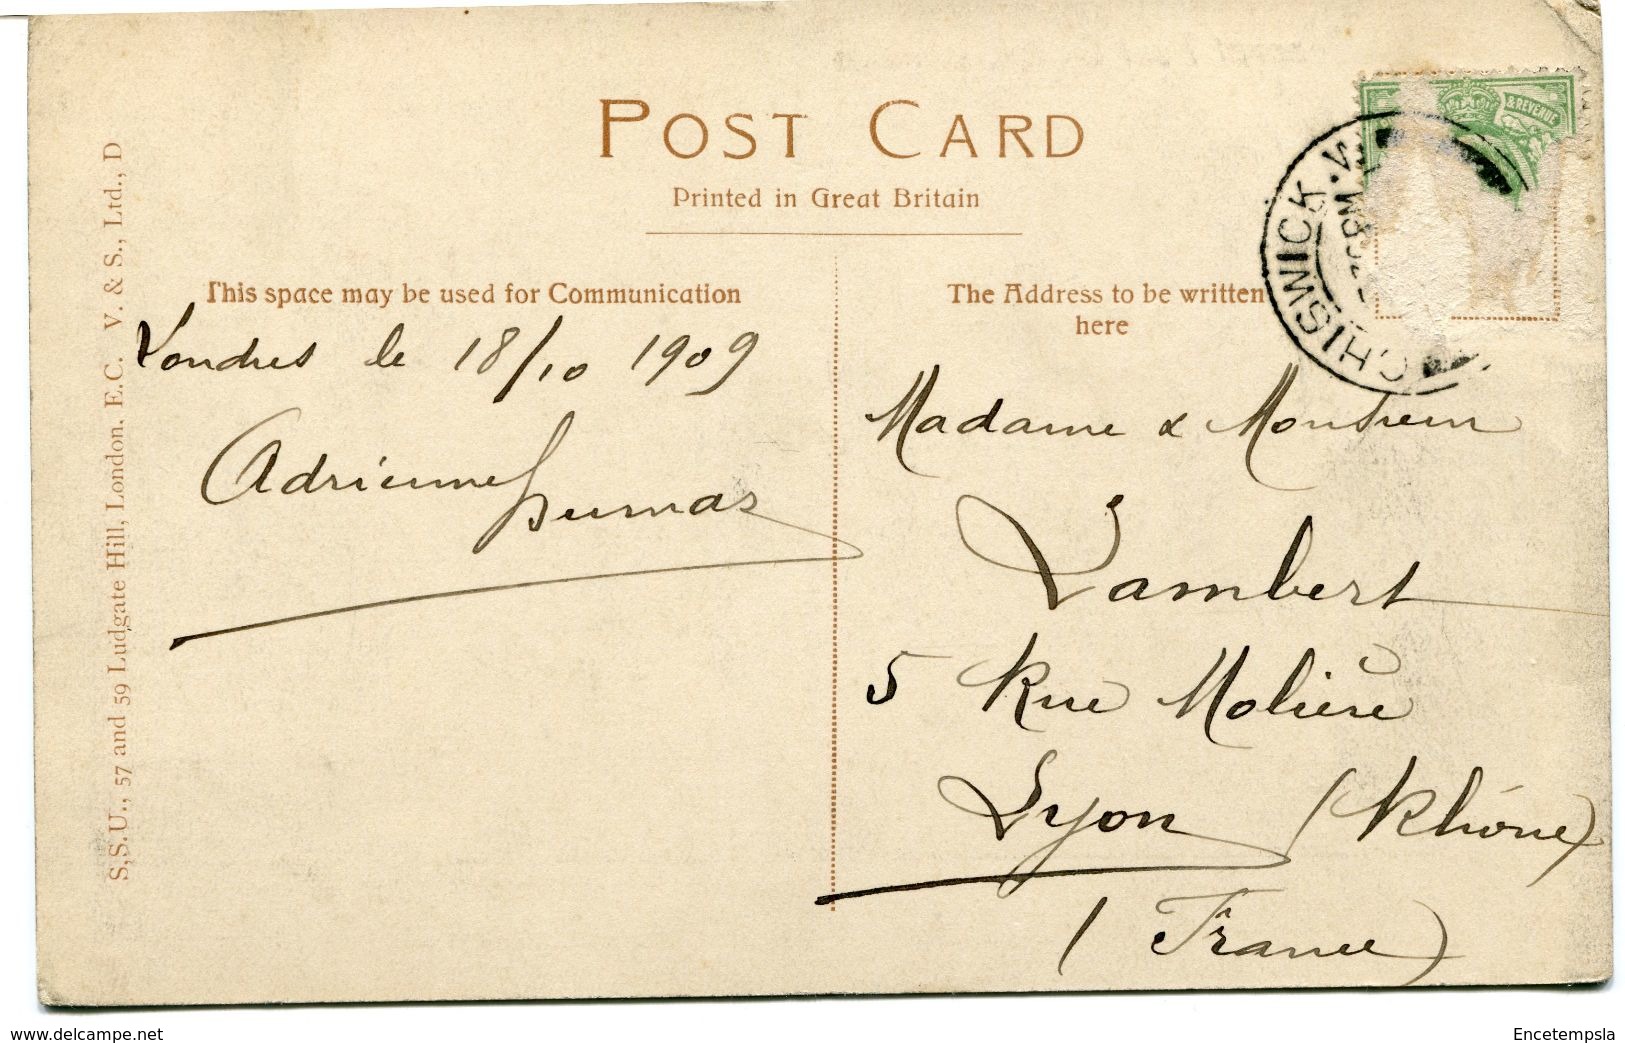 POST CARD
Printed in Great Britain
This space may be used for Communication
The Address to be written
here
S.S.U., 57 and 59 Ludgate Hill, London. E.C. V. & S., Ltd., D
& REVENUE
CHISWICK . W.
Londres le 18/10 1909
Adrienne Dumas
Madame & Monsieur
Lambert
5 Rue Molière
Lyon (Rhône)
(France)
delcampe.net
Encetempsla